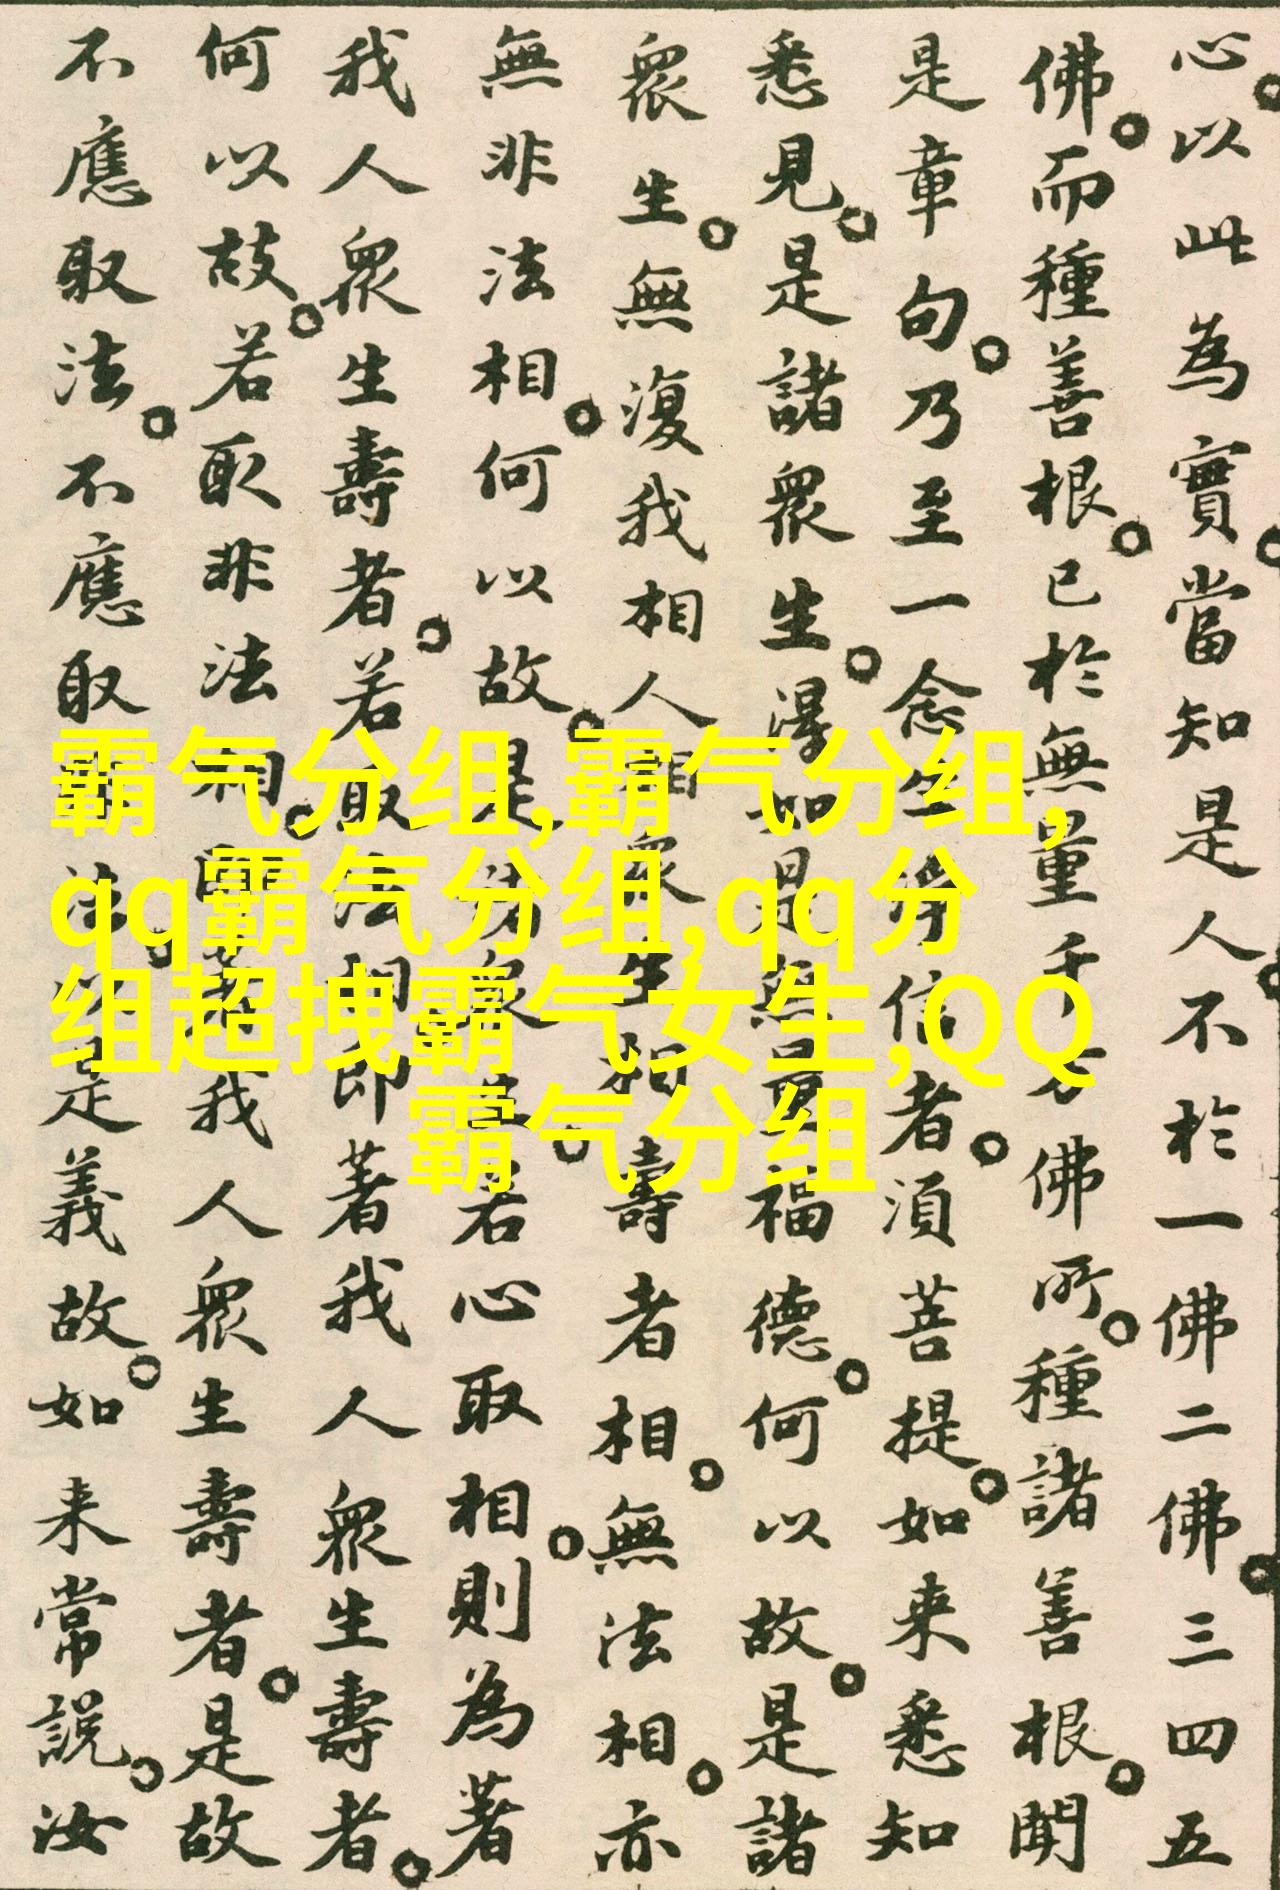 心。以此為實。當知是人。不於一佛二佛。三四五
佛。而種善根。已於無量千万佛所。種諸善根。聞
是章句。乃至一念生淨信者。須菩提。如来悉知
悉見。是諸眾生。得如是無量福德。何以故。是諸
眾生。無復我相人相眾生相壽者相。無法相。亦
無非法相。何以故。是諸眾生。若心取相。則為著
我人眾生壽者。若取法相即著我人眾生壽者。
何以故。若取非法相。即著我人眾生壽者。是故
不應取法。不應取非法。以是義故。如来常說。汝
霸气分组,霸气分组,
qq霸气分组,qq分
组超拽霸气女生,QQ
霸气分组